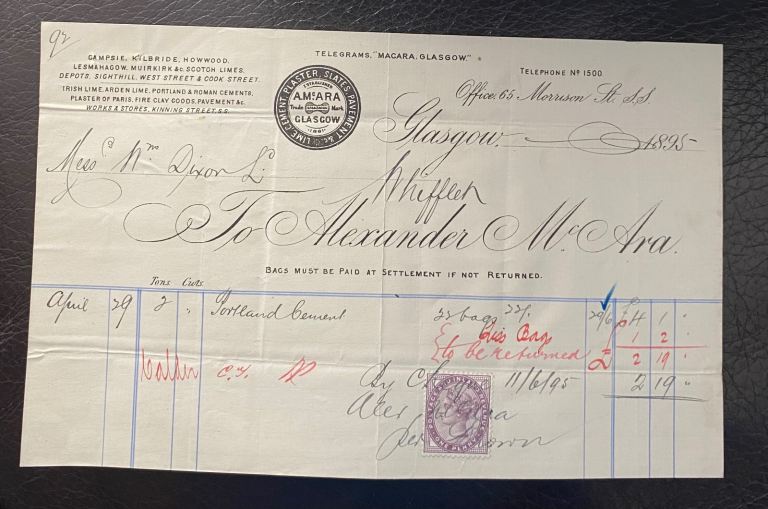 92
TELEGRAMS, "MACARA, GLASGOW."
TELEPHONE Nº 1500
CAMPSIE, KILBRIDE, HOWWOOD,
LESMAHAGOW, MUIRKIRK &c. SCOTCH LIMES.
DEPOTS, SIGHTHILL, WEST STREET & COOK STREET.
IRISH LIME, ARDEN LIME, PORTLAND & ROMAN CEMENTS,
PLASTER OF PARIS, FIRE CLAY GOODS, PAVEMENT &c.
WORKS & STORES, KINNING STREET, S.S.
LIME, CEMENT, PLASTER, SLATES, PAVEMENT &c.
ESTABLISHED
A. McARA
Trade Mark
GLASGOW
Office, 65 Morrison St. S.S.
Glasgow, 1895
Messrs Wm Dixon Ld.
Whifflet
To Alexander McAra.
BAGS MUST BE PAID AT SETTLEMENT IF NOT RETURNED.
Tons Cwts.
April 29 2 " Portland Cement 22 bags 29/6 £4 1 "
Bags 1 2 "
to be returned £ 2 19 "
Calder 2 19 "
By 11/6/95
Alex McAra
per Brown
POSTAGE AND INLAND REVENUE
ONE PENNY